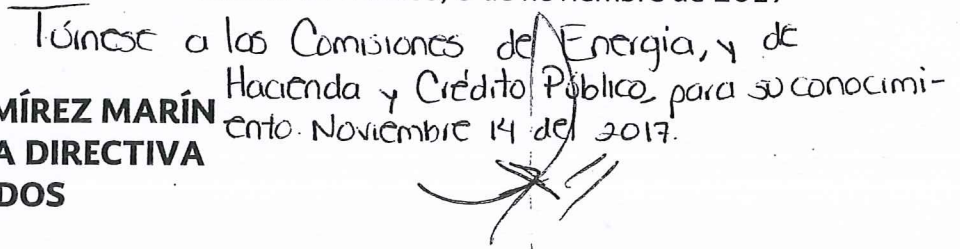 de noviembre de 2017
Túrnese a las Comisiones de Energía, y de
Hacienda y Crédito Público, para su conocimi-
ento. Noviembre 14 del 2017.
MÍREZ MARÍN
A DIRECTIVA
DOS